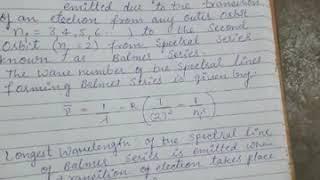 emitted due to the transition
of an electron from any outer orbit
n₂ = 3, 4, 5, 6 ... ) to the second
Orbit (n₁ = 2) from Spectral Series
known as Balmer Series.
The wave number of the Spectral lines
forming Balmer Series is given by:
ν̅ = 1/λ = R (1/(2)² - 1/n₂²)
Longest Wavelength of the spectral line
of Balmer Series is emitted when
transition of electron takes place